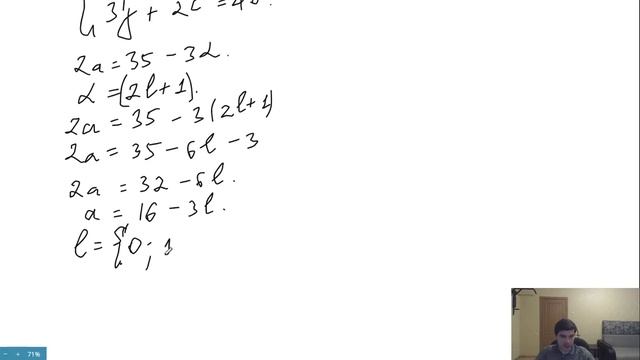 2a = 35 - 3α.
α = (2l + 1).
2a = 35 - 3(2l + 1)
2a = 35 - 6l - 3
2a = 32 - 6l.
a = 16 - 3l.
l = {0; 1
- + 71%